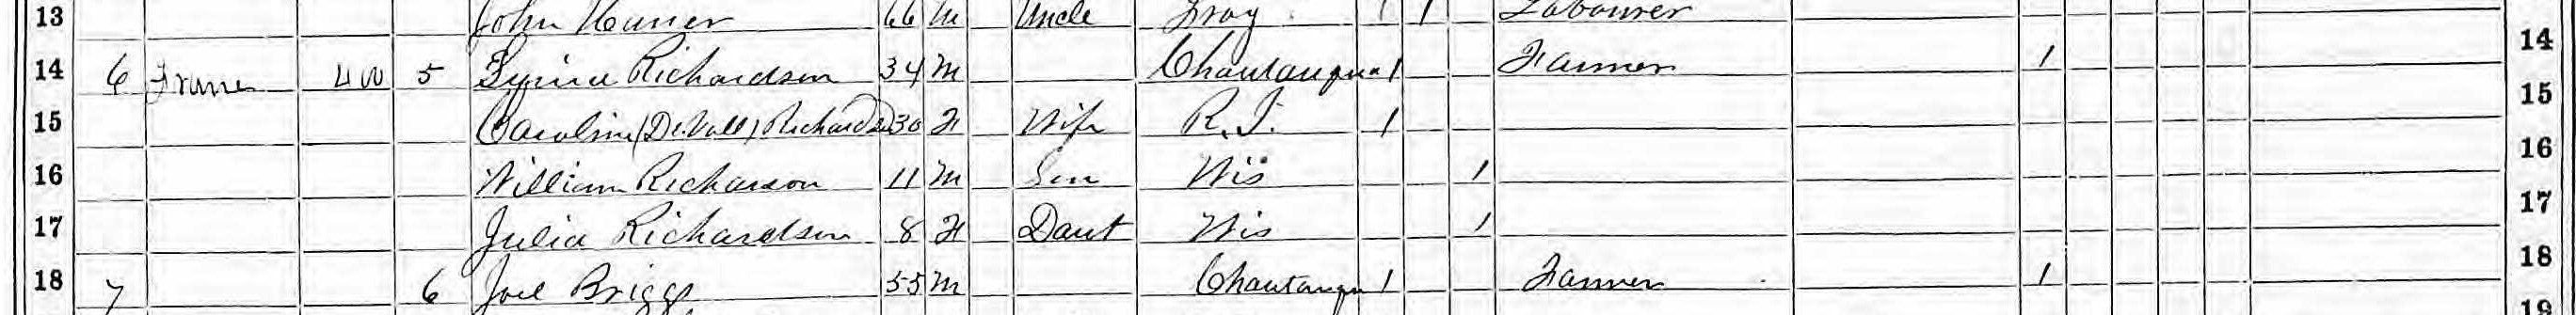 13 John 66 M Uncle Troy 1 1 Labourer
14 6 Frame 400 5 Richardson 34 M Chautauqua 1 Farmer 1 14
15 Caroline (DeVall) Richardson 30 F Wife R.I. 1 15
16 William Richarson 11 M Son Wis 1 16
17 Julia Richardson 8 F Daut Wis 1 17
18 7 6 Joel Briggs 55 M Chautauqu 1 Farmer 1 18
19